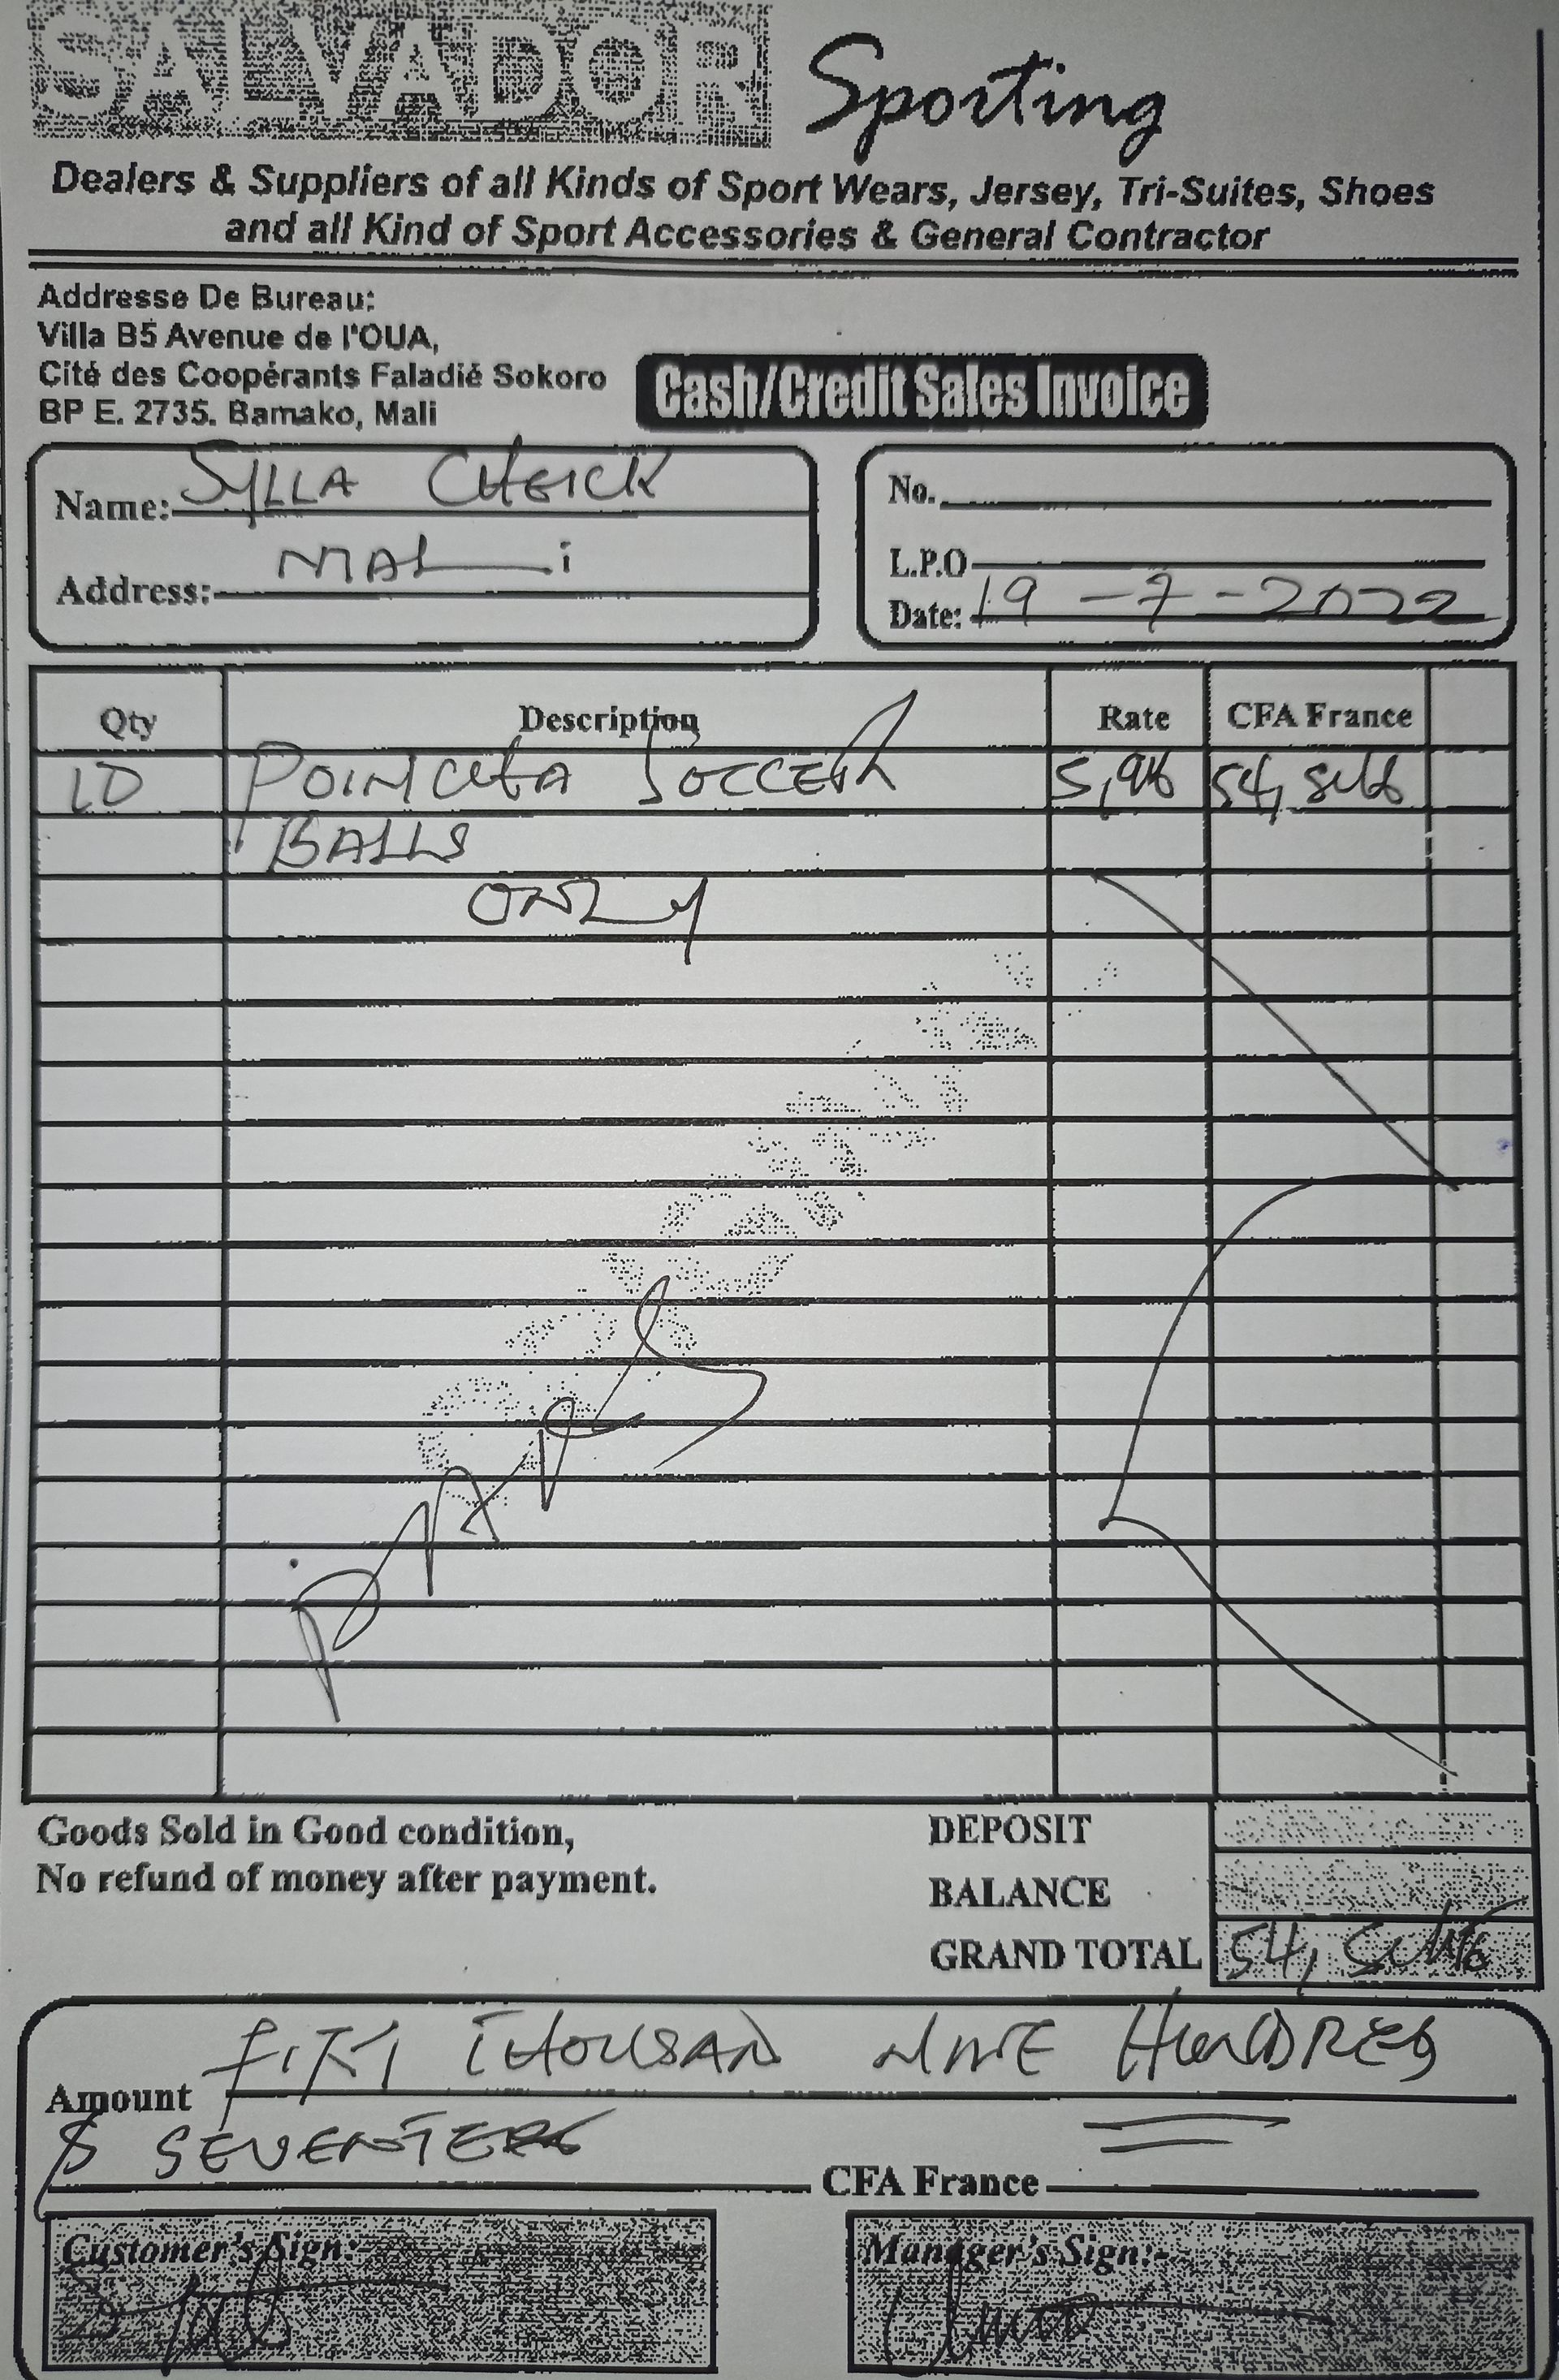 SALVADOR Sporting
Dealers & Suppliers of all Kinds of Sport Wears, Jersey, Tri-Suites, Shoes
and all Kind of Sport Accessories & General Contractor
Addresse De Bureau:
Villa B5 Avenue de l'OUA,
Cité des Coopérants Faladié Sokoro
BP E. 2735. Bamako, Mali
Cash/Credit Sales Invoice
Name: SYLLA CHEICK
Address: MALi
No.
L.P.O
Date: 19-7-2022
Qty Description Rate CFA France
10 SOCCER
BALLS
ONLY
Goods Sold in Good condition,
No refund of money after payment.
DEPOSIT
BALANCE
GRAND TOTAL
Amount THOUSAND NINE HUNDRED
& CFA France
Customer's Sign:
Manager's Sign:-